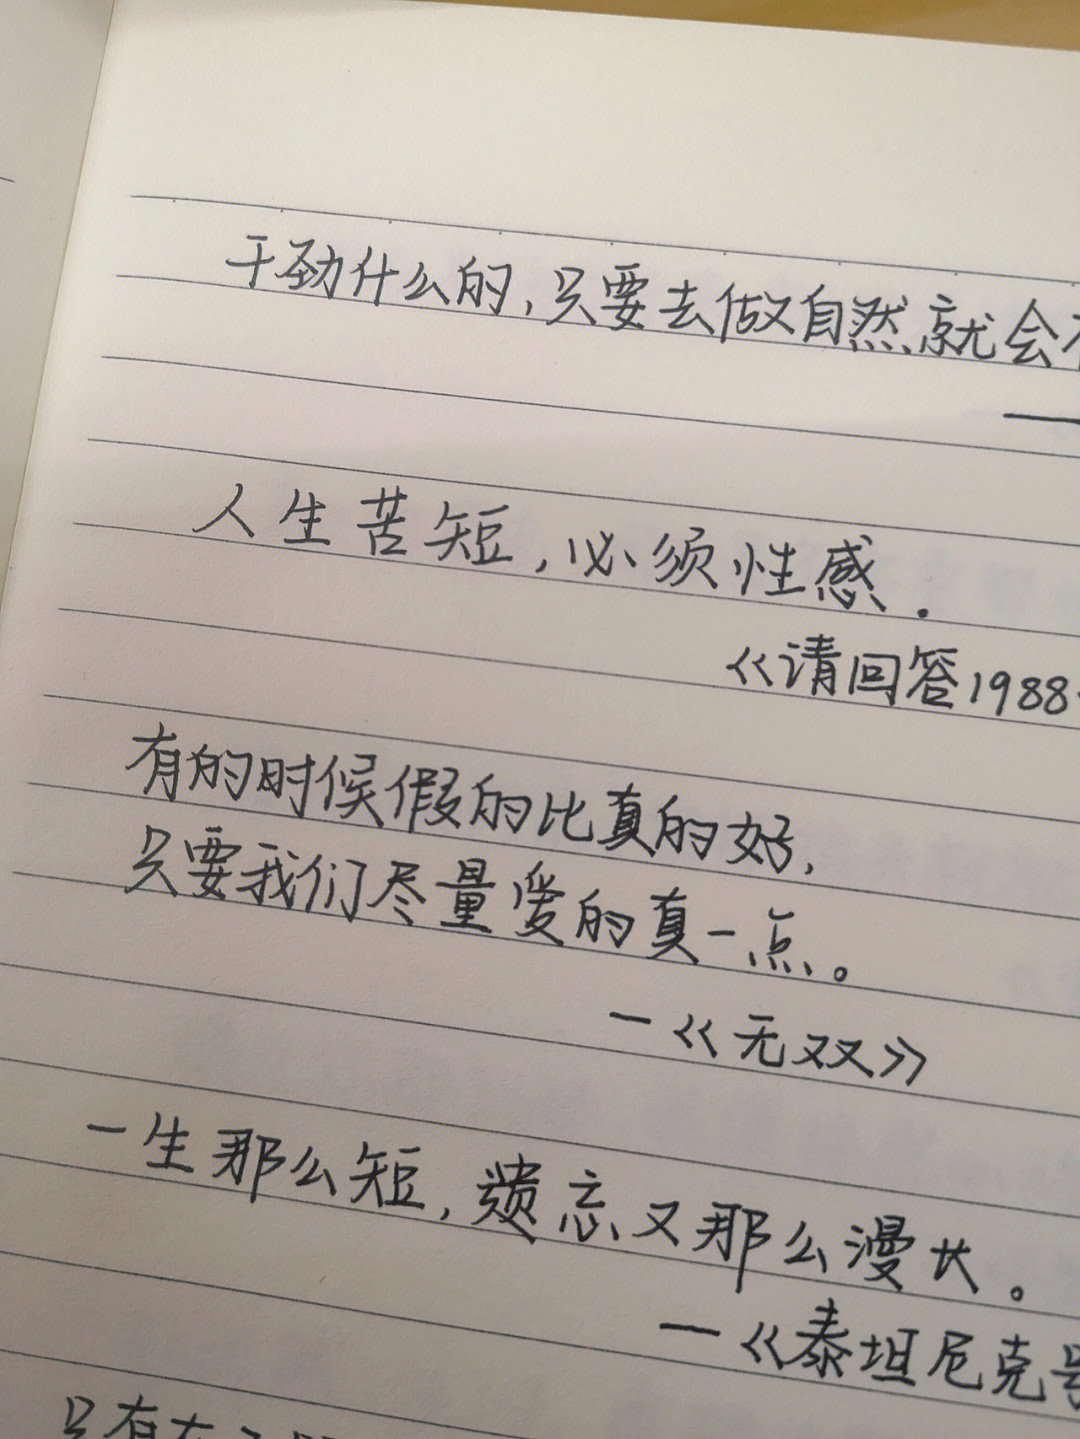 干劲什么的,只要去做自然就会
—
人生苦短,必须性感.
《请回答1988
有的时候假的比真的好,
只要我们尽量爱的真一点。
—《无双》
一生那么短,遗忘又那么漫长。
—《泰坦尼克号
只有在